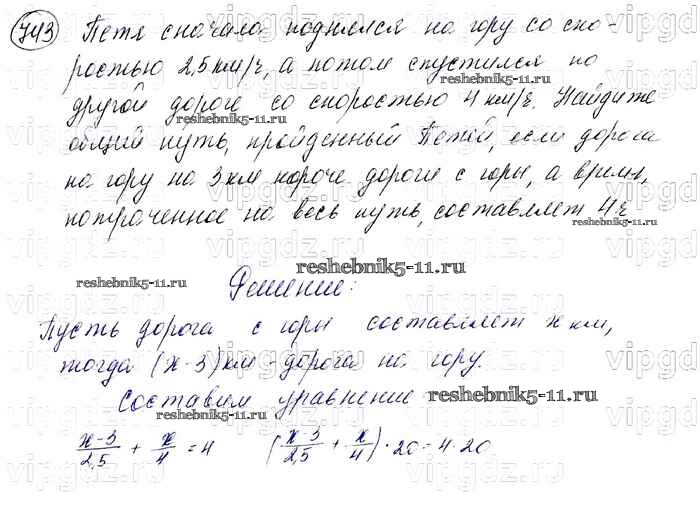 743 Петя сначала поднялся на гору со ско-
ростью 2,5 км/ч, а потом спустился по
другой дороге со скоростью 4 км/ч. Найдите
общий путь, пройденный Петей, если дорога
на гору на 3 км короче дороги с горы, а время,
потраченное на весь путь, составляет 4ч
reshebnik5-11.ru
reshebnik5-11.ru
reshebnik5-11.ru
reshebnik5-11.ru
reshebnik5-11.ru
Решение:
Пусть дорога с горы составляет x км,
тогда (x-3) км - дорога на гору.
Составим уравнение reshebnik5-11.ru
(x-3)/2,5 + x/4 = 4 ((x-3)/2,5 + x/4) · 20 = 4 · 20
vipgdz.ru